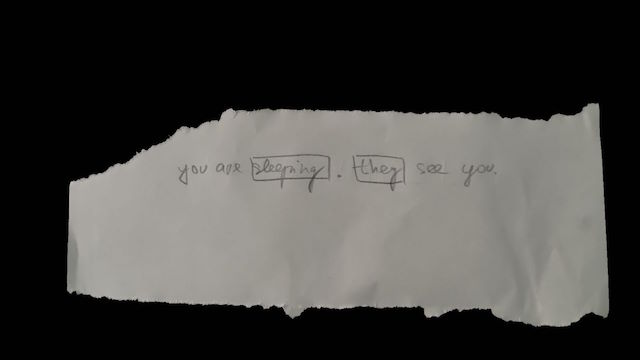 you are sleeping. they see you.